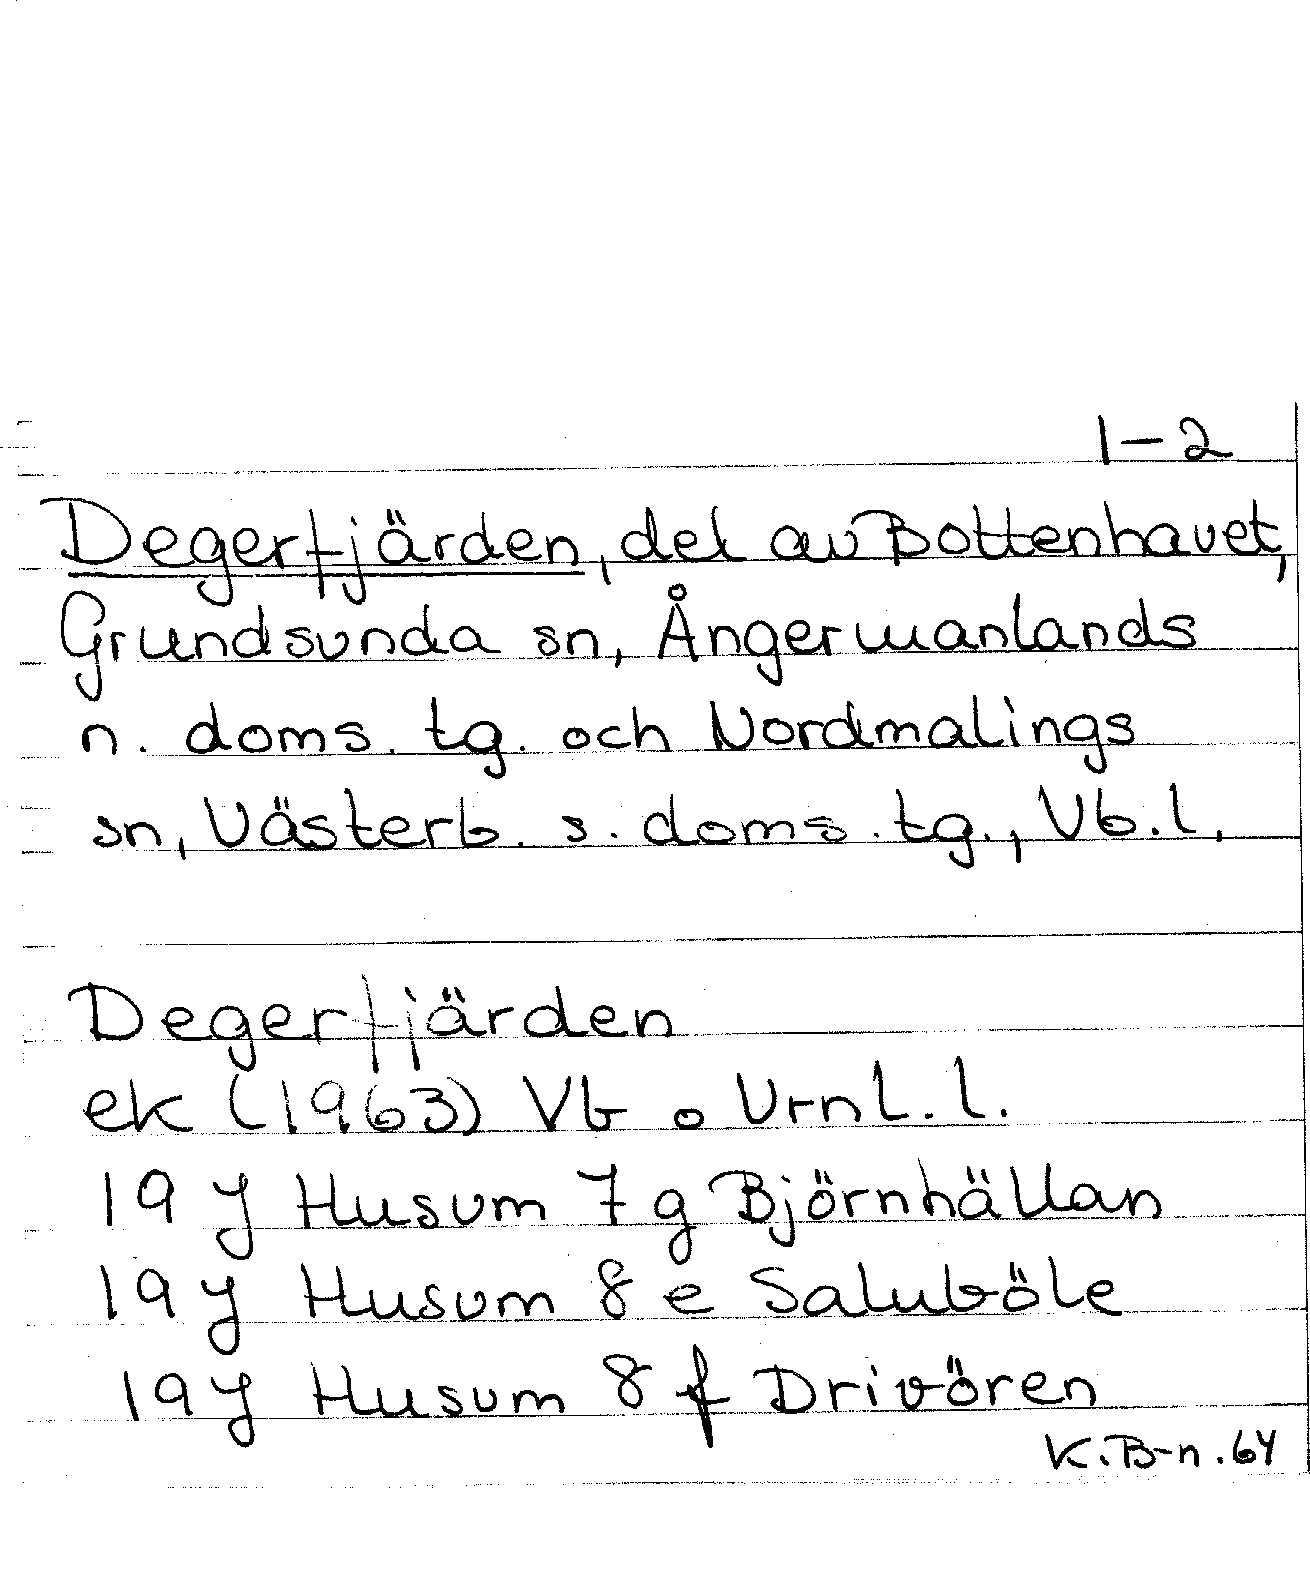 1-2
Degerfjärden, del av Bottenhavet,
Grundsunda sn, Ångermanlands
n. doms. tg. och Nordmalings
sn, Västerb. s. doms. tg., Vb. l.
Degerfjärden
ek (1963) Vb o Vrnl. l.
19 J Husum 7 g Björnhällan
19 J Husum 8 e Saluböle
19 J Husum 8 f Drivören
K. B-n. 64